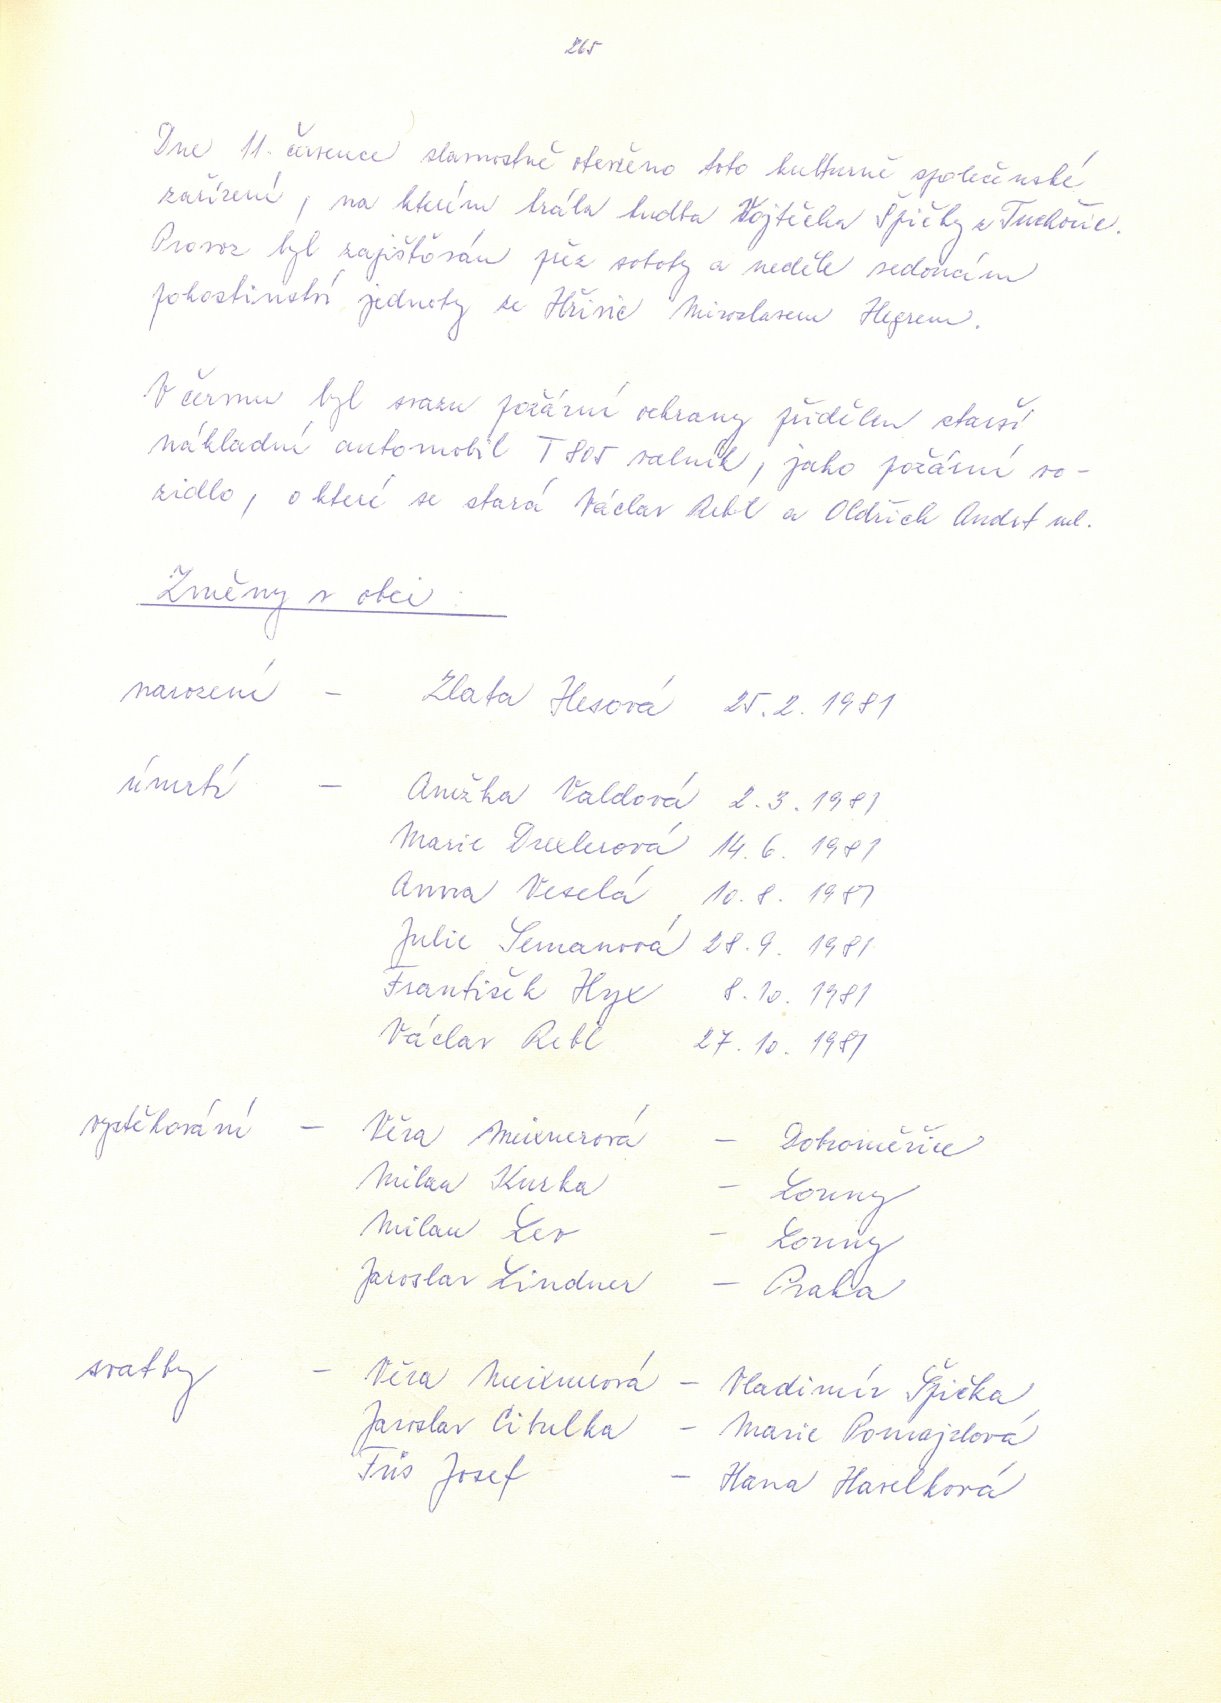 265
Dne 11. července slavnostně otevřeno toto kulturně společenské
zařízení, na kterém hrála hudba Vojtěcha Špičky z Tuchořic.
Provoz byl zajišťován přes soboty a neděle vedoucím
pohostinství jednoty ze Hřivic Miroslavem Hegrem.
V červnu byl svazu požární ochrany přidělen starší
nákladní automobil T 805 valník, jako požární vo-
zidlo, o které se stará Václav Rebl a Oldřich Andrt ml.
Změny v obci :
narození – Zlata Hesová 25. 2. 1981
úmrtí – Anežka Valdová 2. 3. 1981
Marie Drexlerová 14. 6. 1981
Anna Veselá 10. 8. 1981
Julie Semanová 28. 9. 1981
František Hyx 8. 10. 1981
Václav Rebl 27. 10. 1981
vystěhování – Věra Meixnerová – Dobroměřice
Milan Kurka – Louny
Milan Lev – Louny
Jaroslav Lindner – Praha
svatby – Věra Meixnerová – Vladimír Špička
Jaroslav Cibulka – Marie Pomajzlová
Friš Josef – Hana Havelková